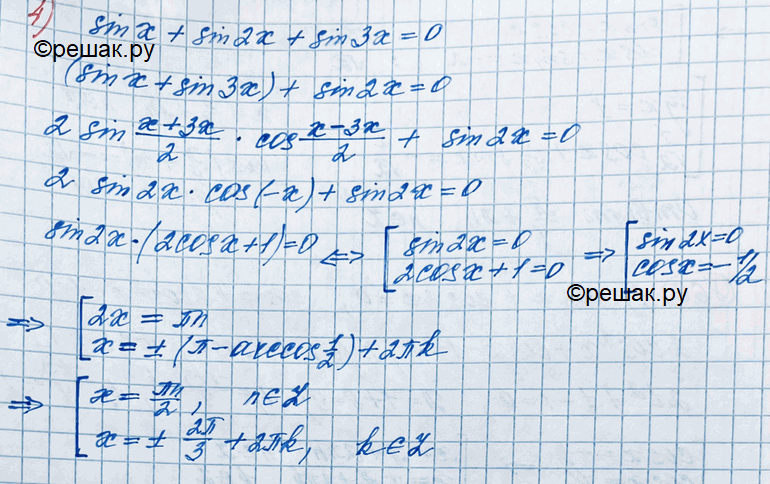 4) sin x + sin 2x + sin 3x = 0
©решак.ру
(sin x + sin 3x) + sin 2x = 0
2 sin (x+3x)/2 · cos (x−3x)/2 + sin 2x = 0
2 sin 2x · cos(−x) + sin 2x = 0
sin 2x · (2cos x + 1) = 0 ⟺ [ sin 2x = 0 ⇒ [ sin 2x = 0
2cos x + 1 = 0 cos x = −1/2
©решак.ру
⇒ [ 2x = πn
x = ± (π − arccos 1/2) + 2πk
⇒ [ x = πn/2, n∈Z
x = ± 2π/3 + 2πk, k∈Z